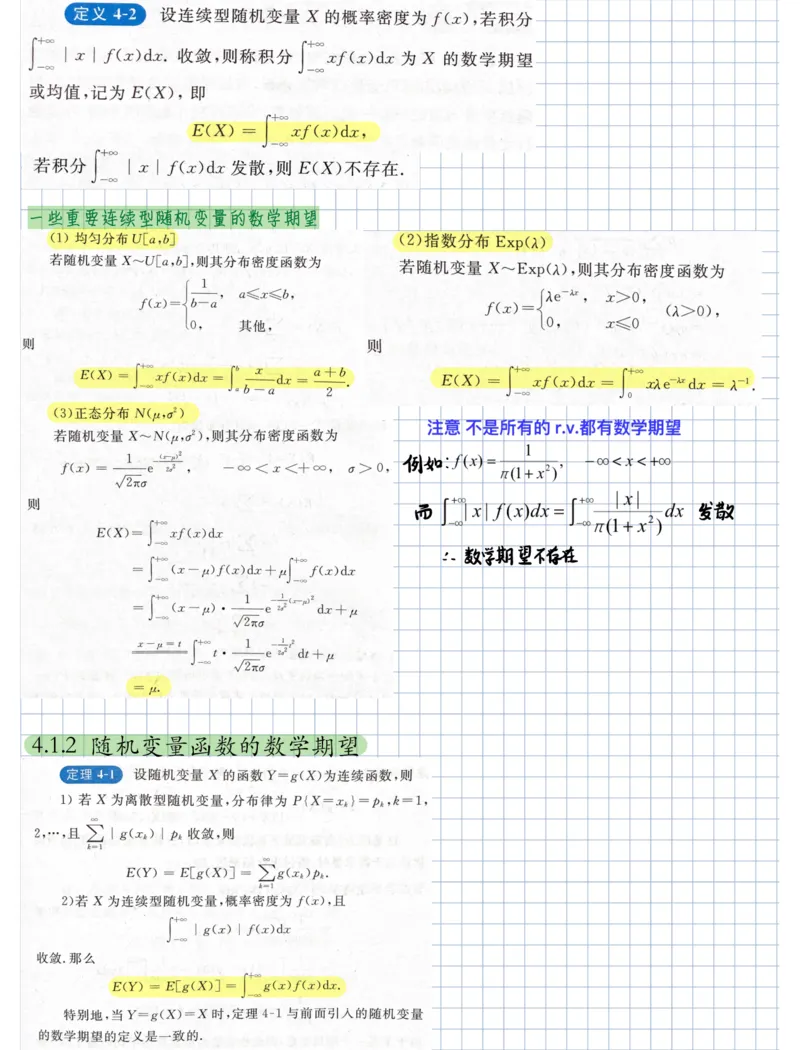 定义 4-2 设连续型随机变量 X 的概率密度为 f(x),若积分
∫_{-∞}^{+∞} | x | f(x)dx. 收敛,则称积分 ∫_{-∞}^{+∞} xf(x)dx 为 X 的数学期望
或均值,记为 E(X), 即
E(X) = ∫_{-∞}^{+∞} xf(x)dx,
若积分 ∫_{-∞}^{+∞} | x | f(x)dx 发散,则 E(X)不存在.
一些重要连续型随机变量的数学期望
(1) 均匀分布 U[a,b]
若随机变量 X~U[a,b],则其分布密度函数为
f(x)= { 1/(b-a), a≤x≤b,
0, 其他,
则
E(X) = ∫_{-∞}^{+∞} xf(x)dx = ∫_a^b x/(b-a) dx = (a+b)/2.
(2)指数分布 Exp(λ)
若随机变量 X~Exp(λ),则其分布密度函数为
f(x)= { λe^{-λx}, x>0,
0, x≤0 (λ>0),
则
E(X) = ∫_{-∞}^{+∞} xf(x)dx = ∫_0^{+∞} xλe^{-λx}dx = λ^{-1}.
(3)正态分布 N(μ,σ²)
若随机变量 X~N(μ,σ²),则其分布密度函数为
f(x) = 1/(√2πσ) e^{-(x-μ)²/2σ²}, -∞<x<+∞, σ>0,
则
E(X)= ∫_{-∞}^{+∞} xf(x)dx
= ∫_{-∞}^{+∞} (x-μ)f(x)dx+μ∫_{-∞}^{+∞} f(x)dx
= ∫_{-∞}^{+∞} (x-μ)· 1/(√2πσ) e^{-1/2σ² (x-μ)²} dx+μ
x-μ=t ∫_{-∞}^{+∞} t· 1/(√2πσ) e^{-1/2σ² t²} dt+μ
=μ.
注意 不是所有的 r.v.都有数学期望
例如: f(x)= 1/(π(1+x²)), -∞<x<+∞
而 ∫_{-∞}^{+∞} |x| f(x)dx = ∫_{-∞}^{+∞} |x|/(π(1+x²)) dx 发散
∴ 数学期望不存在
4.1.2 随机变量函数的数学期望
定理 4-1 设随机变量 X 的函数 Y=g(X)为连续函数,则
1) 若 X 为离散型随机变量,分布律为 P{X=x_k}=p_k,k=1,
2,…,且 ∑_{k=1}^{∞} | g(x_k) | p_k 收敛,则
E(Y) = E[g(X)] = ∑_{k=1}^{∞} g(x_k)p_k.
2)若 X 为连续型随机变量,概率密度为 f(x),且
∫_{-∞}^{+∞} | g(x) | f(x)dx
收敛.那么
E(Y) = E[g(X)] = ∫_{-∞}^{+∞} g(x)f(x)dx.
特别地,当 Y=g(X)=X 时,定理 4-1 与前面引入的随机变量
的数学期望的定义是一致的.